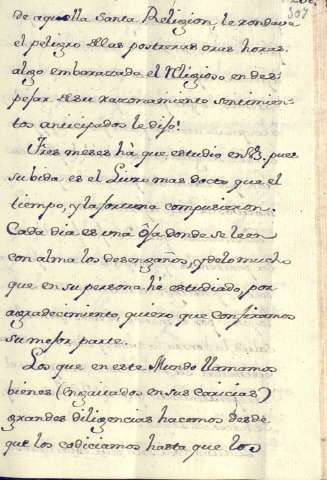 807
de aquella Santa Religion, le rondava
el peligro de las postreras oras horas
algo embarazado el Religioso en des-
pejar de su raxonamiento sentimien-
tos anticipados le dijo!
Tres meses hà que estudio en S3. pues
su bida es el Livro mas docto que el
tiempo, y la fortuna compusieron.
Cada dia es una oja donde se leen
con alma los desengaños, y de lo mucho
que en su persona hè estudiado, por
agradecimiento, quiero que confiramos
su mejor parte.
Los que en este Mundo llamamos
bienes (engaitados en sus caricias)
grandes diligencias hacemos desde
que los codiciamos hasta que los